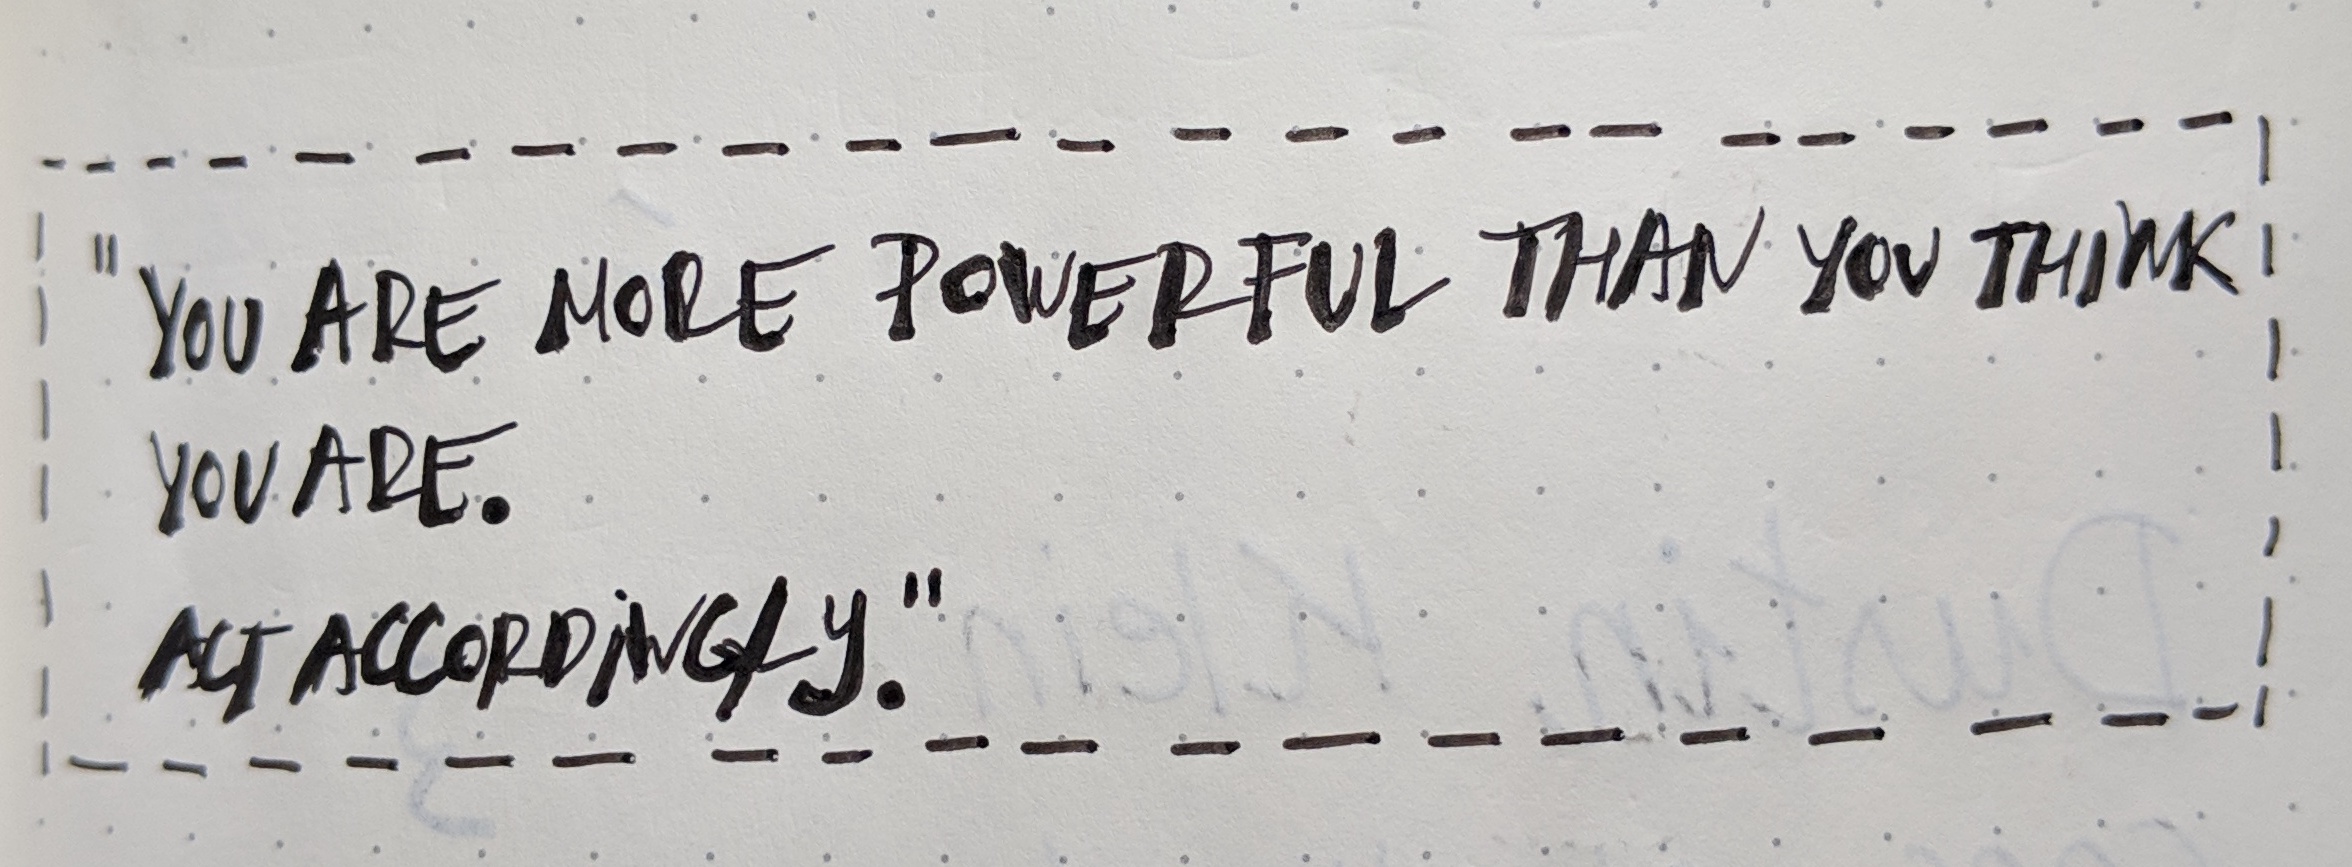 "YOU ARE MORE POWERFUL THAN YOU THINK
YOU ARE.
ACT ACCORDINGLY."
Dustin Klein